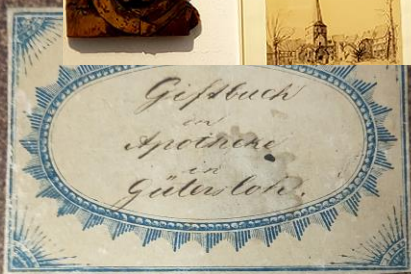 Giftbuch
der
Apotheke
in
Gütersloh.